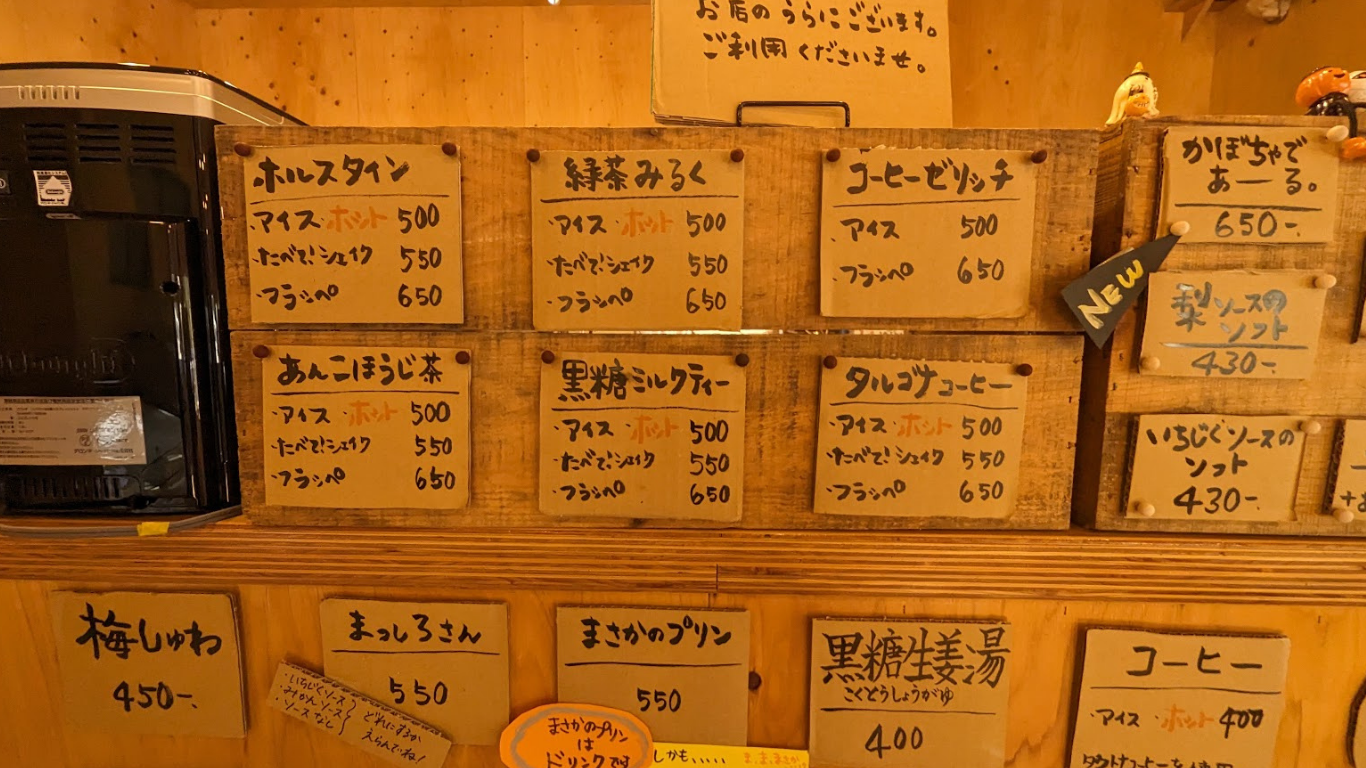 お店のうらにございます。
ご利用くださいませ。
ホルスタイン
アイス・ホット 500
・たべて!シェイク 550
・フラッペ 650
緑茶みるく
アイス・ホット 500
・たべて!シェイク 550
・フラッペ 650
コーヒーゼリッチ
・アイス 500
・フラッペ 650
かぼちゃで
あーる。
650-.
NEW
梨ソースの
ソフト
430-
いちじくソースの
ソフト
430-
あんこほうじ茶
・アイス・ホット 500
・たべて!シェイク 550
・フラッペ 650
黒糖ミルクティー
・アイス・ホット 500
・たべて!シェイク 550
・フラッペ 650
タルゴナコーヒー
・アイス・ホット 500
・たべて!シェイク 550
・フラッペ 650
梅しゅわ
450-.
まっしろさん
550
・いちじくソース
・みかんソース
・ソースなし
どれにするか
えらんでね!
まさかのプリン
550
まさかのプリン
は
ドリンクです
しかも、、、、、
黒糖生姜湯
こくとうしょうがゆ
400
コーヒー
・アイス・ホット 400